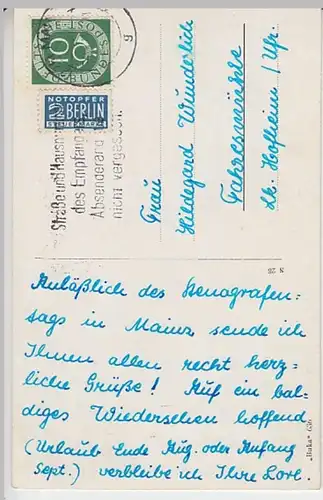 10
g
NOTOPFER
2 BERLIN
STEUERMARKE
Straße und Hausnummer
des Empfängers
Absenderang
nicht vergessen.
Frau
Hildegard Wunderlich
Kr. Hofheim / Ufr.
S 26
Anläßlich des Stenografen=
tags in Mainz sende ich
Ihnen allen recht herz=
liche Grüße! Auf ein bal=
diges Wiedersehen hoffend
(Urlaub Ende Aug. oder Anfang
Sept.) verbleibe ich Ihre Lore.